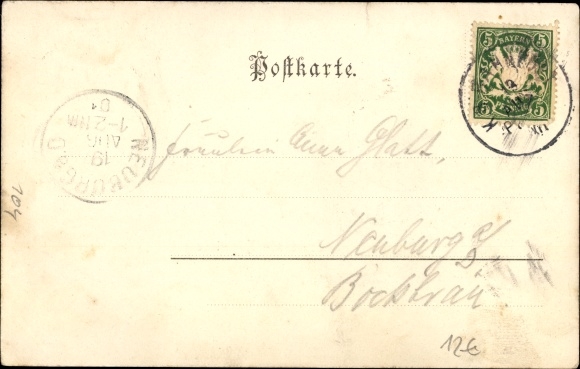 Postkarte.
5 BAYERN 5
5 5
NEUBURG a/D
19
AUG
1-2 NM
01
Fräulein Anna Glatt,
Neuburg a/D
Bockbräu
104
12€